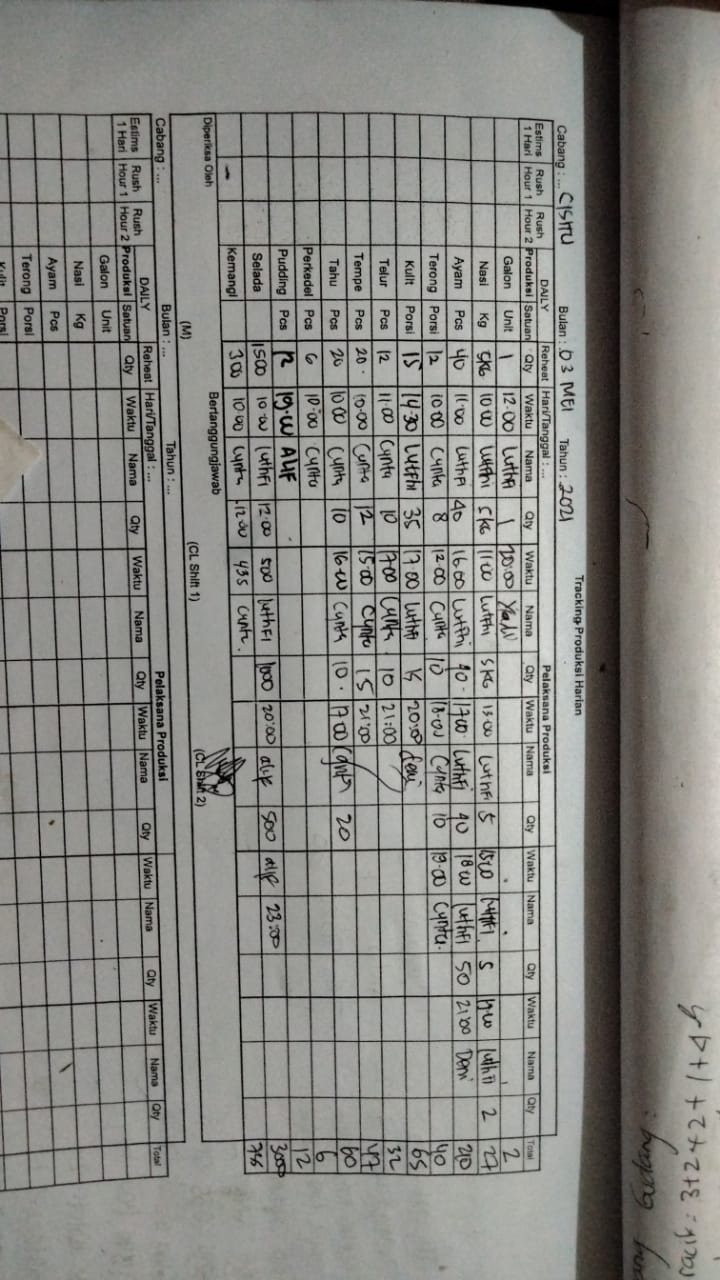 Tracking Produksi Harian
Cabang : ... CISITU Bulan : .. 03 MEI Tahun : .. 2021
Estims 1 Hari Rush Hour 1 Rush Hour 2 DAILY Produksi Satuan Reheat Qty Hari/Tanggal : ... Pelaksana Produksi
Waktu Nama Qty Waktu Nama Qty Waktu Nama Qty Waktu Nama Qty Waktu Nama Qty Total
Galon Unit 1 12:00 Luthfi 1 20:00 2
Nasi Kg 5kg 10:00 Luthfi 5kg 11:00 Luthfi 5kg 13:00 Luthfi 5 Luthfi 5 Luthfi 2 27
Ayam Pcs 40 11:00 Luthfi 40 16:00 Luthfi 40 17:00 Luthfi 40 18:00 Luthfi 50 21:00 Deni 210
Terong Porsi 12 10:00 Cynta 8 12:00 Cynta 10 18:00 Cynta 10 19:00 Cynta 40
Kulit Porsi 15 14:30 Luthfi 35 17:00 Luthfi 15 20:00 Deni 65
Telur Pcs 12 11:00 Cynta 10 17:00 Cynta 10 21:00 32
Tempe Pcs 20 10:00 Cynta 12 15:00 Cynta 15 21:00 47
Tahu Pcs 20 10:00 Cynta 10 16:00 Cynta 10 17:00 Cynta 20 60
Perkedel Pcs 6 10:00 Cynta 6
Pudding Pcs 12 19:00 Alif 12
Selada 1500 10:00 Luthfi 12:00 500 Luthfi 1000 20:00 alif 500 alif 23:00 3000
Kemangi 300 10:00 Cynta 12:00 435 Cynta
Diperiksa Oleh Bertanggungjawab
(M) (CL Shift 1) (CL Shift 2)
Cabang : ... Bulan : ... Tahun : ...
Estims 1 Hari Rush Hour 1 Rush Hour 2 DAILY Produksi Satuan Reheat Qty Hari/Tanggal : ... Pelaksana Produksi
Waktu Nama Qty Waktu Nama Qty Waktu Nama Qty Waktu Nama Qty Waktu Nama Qty Total
Galon Unit
Nasi Kg
Ayam Pcs
Terong Porsi
Kulit Porsi